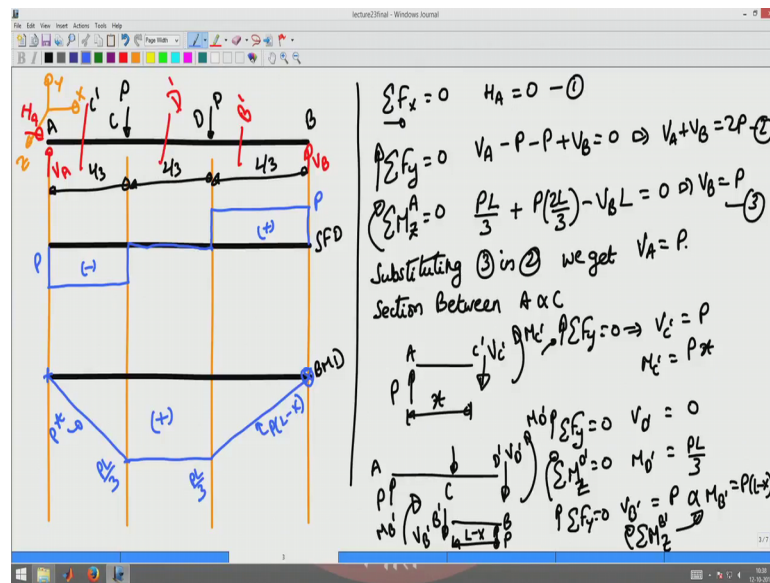 lecture23final - Windows Journal
File Edit View Insert Actions Tools Help
Page Width
B I
y
x
z
HA
A
C'
P
C
D'
D
P
B'
B
VA
VB
L/3 L/3 L/3
P
(-)
(+)
P
SFD
BMD
Px
(+)
P(L-x)
PL/3
PL/3
ΣFx = 0 HA = 0 - ①
ΣFy = 0 VA - P - P + VB = 0 ⇒ VA + VB = 2P - ②
ΣMzA = 0 PL/3 + P(2L/3) - VBL = 0 ⇒ VB = P - ③
Substituting ③ in ② we get VA = P.
Section Between A & C
A C' VC' MC' ΣFy = 0 ⇒ VC' = P
P x MC' = Px
A C D' VD' MD' ΣFy = 0 VD' = 0
P P ΣMzD' = 0 MD' = PL/3
MB' VB' B' B ΣFy = 0 VB' = P & MB' = P(L-x)
L-x P ΣMzB'
3
3/7
10:38